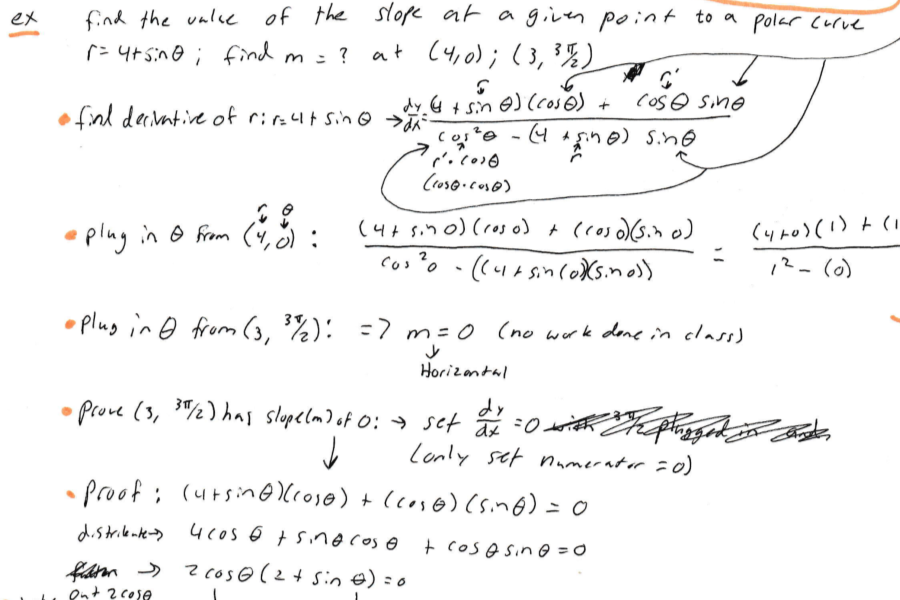 ex find the value of the slope at a given point to a polar curve
r = 4+sinθ ; find m = ? at (4,0) ; (3, 3π/2)
r r'
• find derivative of r: r=4+sinθ → dy/dx = (4 + sinθ)(cosθ) + cosθ sinθ
cos²θ - (4 + sinθ) sinθ
r'·cosθ r
(cosθ·cosθ)
r θ
• plug in θ from (4, 0) : (4+ sin 0)(cos 0) + (cos 0)(sin 0) = (4+0)(1) + (1
cos²0 - ((4+sin(0)(sin 0)) 1² - (0)
• Plug in θ from (3, 3π/2): => m = 0 (no work done in class)
Horizontal
• Prove (3, 3π/2) has slope(m) of 0: → set dy/dx = 0
(only set numerator = 0)
• Proof ; (4+sinθ)(cosθ) + (cosθ)(sinθ) = 0
distribute → 4cosθ + sinθcosθ + cosθsinθ = 0
→ 2cosθ(2 + sinθ) = 0
out 2cosθ